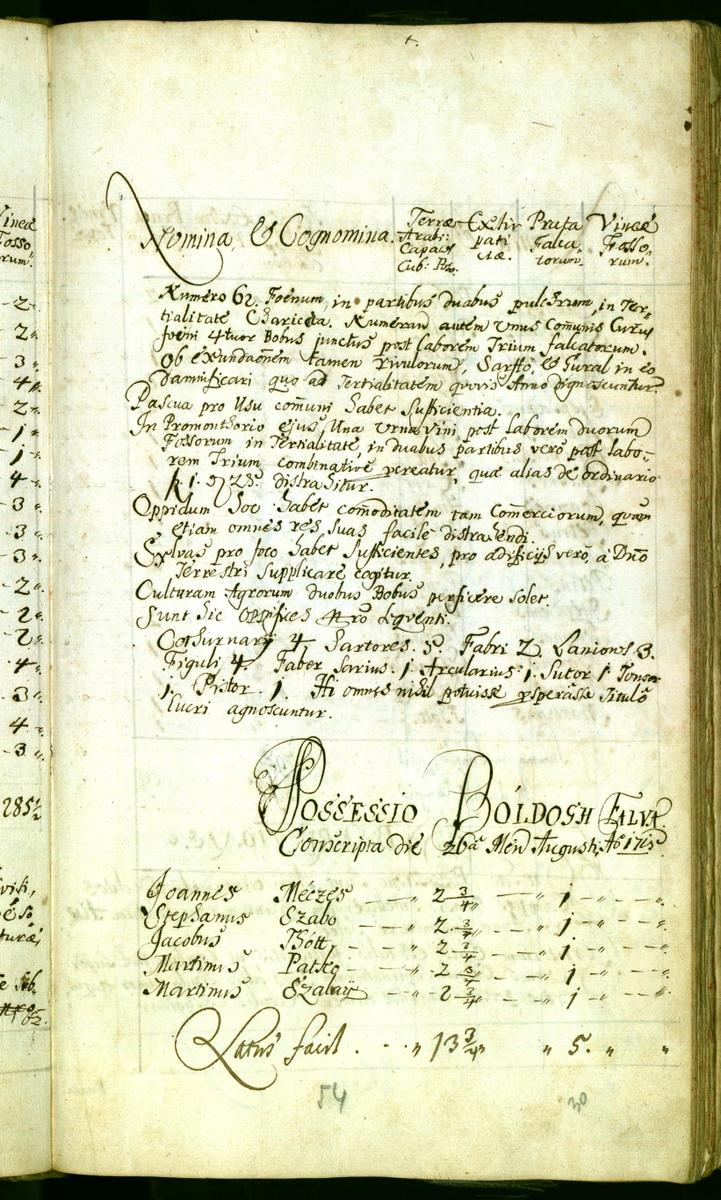 Nomina, & Cognomina. Terræ Arabi: Capacis Cub: Po. Extirpatitiæ. Prata Falcatorum. Vineæ Fossorum.
Numero 62. Foenum, in partibus duabus pulchrum, in Ter-
tialitate Chariceta. Numerando autem Unus Comunis Currus
foeni 4tuor Bobus junctus post laborem Trium falcatorum.
Ob exundaõnem tamen rivulorum, Sarffö, & Gural in eo
damnificari quo ad Tertialitatem quovis Anno dignoscuntur.
Pascua pro Usu comuni habet Sufficientia.
In Promonthorio ejus, Una Urna vini post laborem duorum
Fossorum in Tertialitate, in duabus partibus vero post labo-
rem Trium combinative pereatur, quæ alias de ordinario
f 1. 25. distrahitur.
Oppidum hoc habet comoditatem tam Comerciorum, quam
etiam omnes res Suas facile distrahendi.
Sylvas pro foco habet Sufficientes, pro ædificijs vero, a Dno
Terrestri Supplicare cogitur.
Culturam Agrorum duobus Bobus perficere solet.
Sunt hic Opifices Nro Sequenti.
Cothurnarij 4. Sartores. 5. Fabri 2. Laniones 3.
Figuli 4. Faber Sarius. 1. Arcularius 1. Sutor 1 Tonsor
1. Pistor. 1. Hi omnes nihil potuisse Titulo
lucri agnoscuntur.
Possessio Bóldosh Falva
Conscripta die 26a Mens Augusti, Ao 1715
Joannes Méczes 2 3/4 " 1 " "
Stephanus Szabo 2 3/4 " 1 " "
Jacobus Bótt 2 3/4 " 1 " "
Martinus Patkó 2 3/4 " 1 " "
Martinus Szalaij 2 3/4 " 1 " "
Latus facit . . " 13 3/4 " " 5. " "
54 30
2
2
3
4
2
1
1
4
3
3
3
2
2
2
4
3
4
3
285 1/2